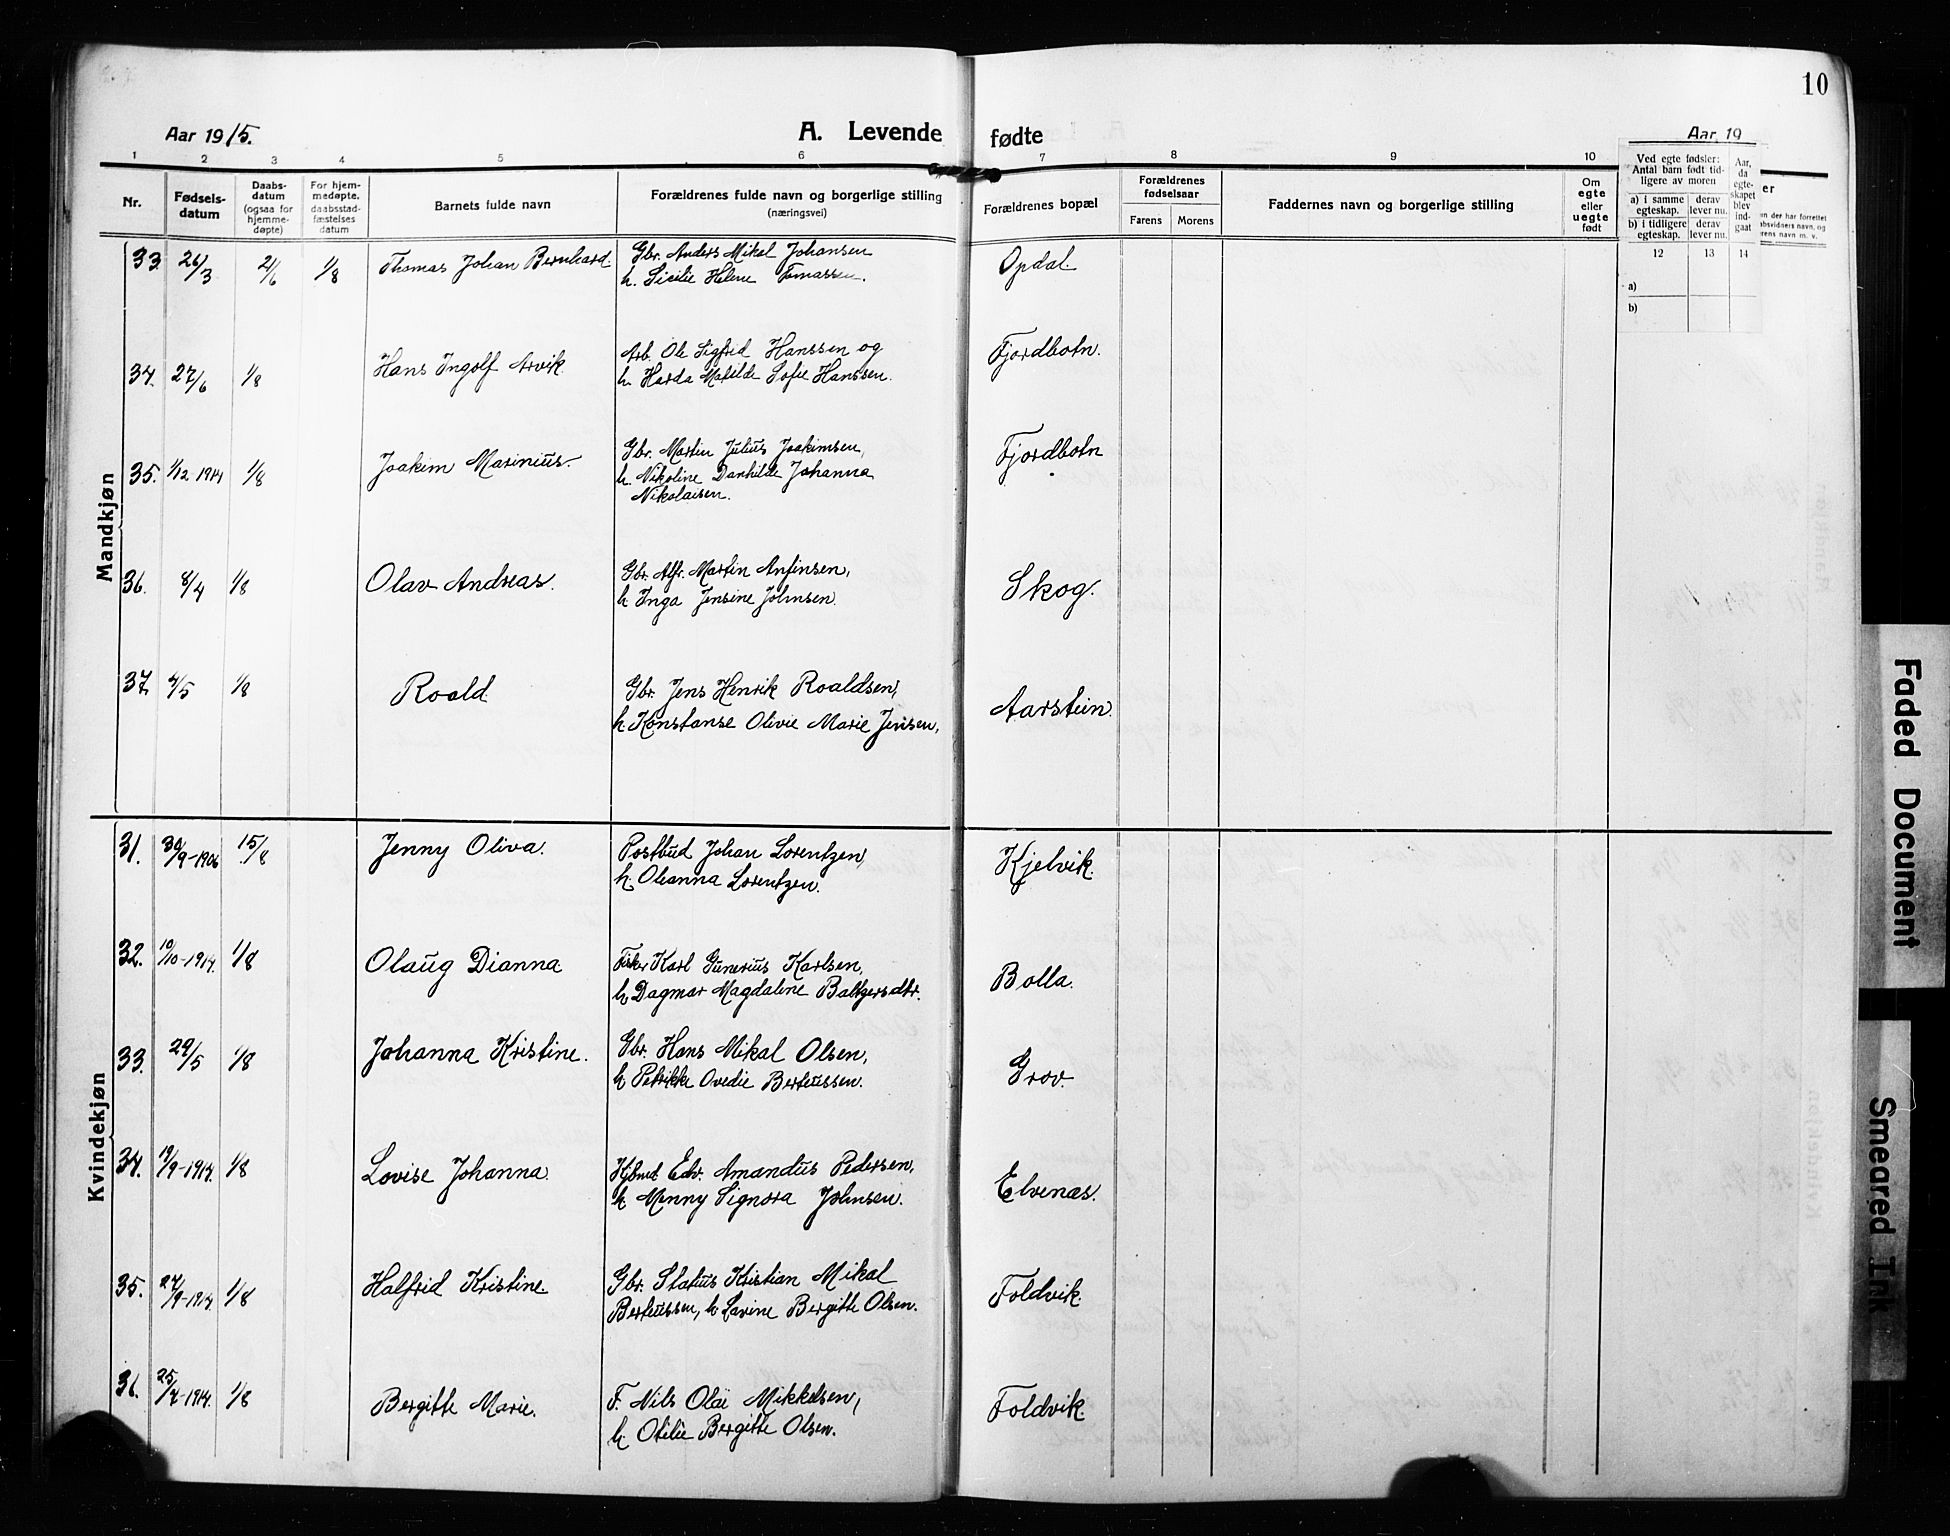 10
Aar 1915.
A. Levende fødte
Aar 19
1 2 3 4 5 6 7 8 9 10
Nr.
Fødsels-
datum
Daabs-
datum
(ogsaa for
hjemme-
døpte)
For hjem-
medøpte,
daabsstad-
fæstelses
datum
Barnets fulde navn
Forældrenes fulde navn og borgerlige stilling
(næringsvei)
Forældrenes bopæl
Forældrenes
fødselsaar
Farens Morens
Faddernes navn og borgerlige stilling
Om
egte
eller
uegte
født
Ved egte fødsler:
Antal barn født tid-
ligere av moren
a) i samme
egteskap.
derav
lever nu.
b) i tidligere
egteskap.
derav
lever nu.
Aar,
da
egte-
skapet
blev
ind-
gaat
12 13 14
a)
b)
er
en der har forrettet
absvidners navn, og
rens navn m. v.
Mandkjøn
33. 26/3 2/6 1/8 Thomas Johan Bernhard. Gbr. Anders Mikal Johansen Opdal.
h. Sicilie Helene Tomassen.
34. 27/6 1/8 Hans Ingolf Arvik. Arb. Ole Sigfred Hanssen og Fjordbotn.
h. Harda Matilde Sofie Hanssen.
35. 1/12 1914 1/8 Joakim Marinius. Gbr. Martin Julius Joakimsen, Fjordbotn
h. Nikoline Danhilde Johanna
Nikolaisen.
36. 8/4 1/8 Olav Andreas. Gbr. Alfr. Martin Anfinsen, Skog.
h. Inga Jensine Johnsen.
37. 4/5 1/8 Roald Gbr. Jens Henrik Roaldsen, Aarstein.
h. Konstanse Olivie Marie Jensen,
Kvindekjøn
31. 30/9-1906 15/8 Jenny Oliva. Postbud Johan Lorentzen, Kjelvik.
h. Oleanna Lorentzen.
32. 10/10-1914. 1/8 Olaug Dianna Fisker Karl Gunerius Karlsen, Bolla.
h. Dagmar Magdalene Baltzersdtr.
33. 29/5 1/8 Johanna Kristine. Gbr. Hans Mikal Olsen, Grov.
h. Petrikke Ovedie Berteussen.
34. 19/9-1914. 1/8 Lovise Johanna. Edv. Amandus Pedersen, Elvenæs.
h. Menny Signora Johnsen.
35. 27/9-1914 1/8 Halfrid Kristine. Gbr. Status Kristian Mikal Foldvik.
Berteussen, h. Lavine Bergitte Olsen.
36. 25/7-1914. 1/8 Bergitte Marie. F. Nils Olai Mikkelsen, Foldvik.
h. Otilie Bergitte Olsen.
Faded Document
Smeared Ink